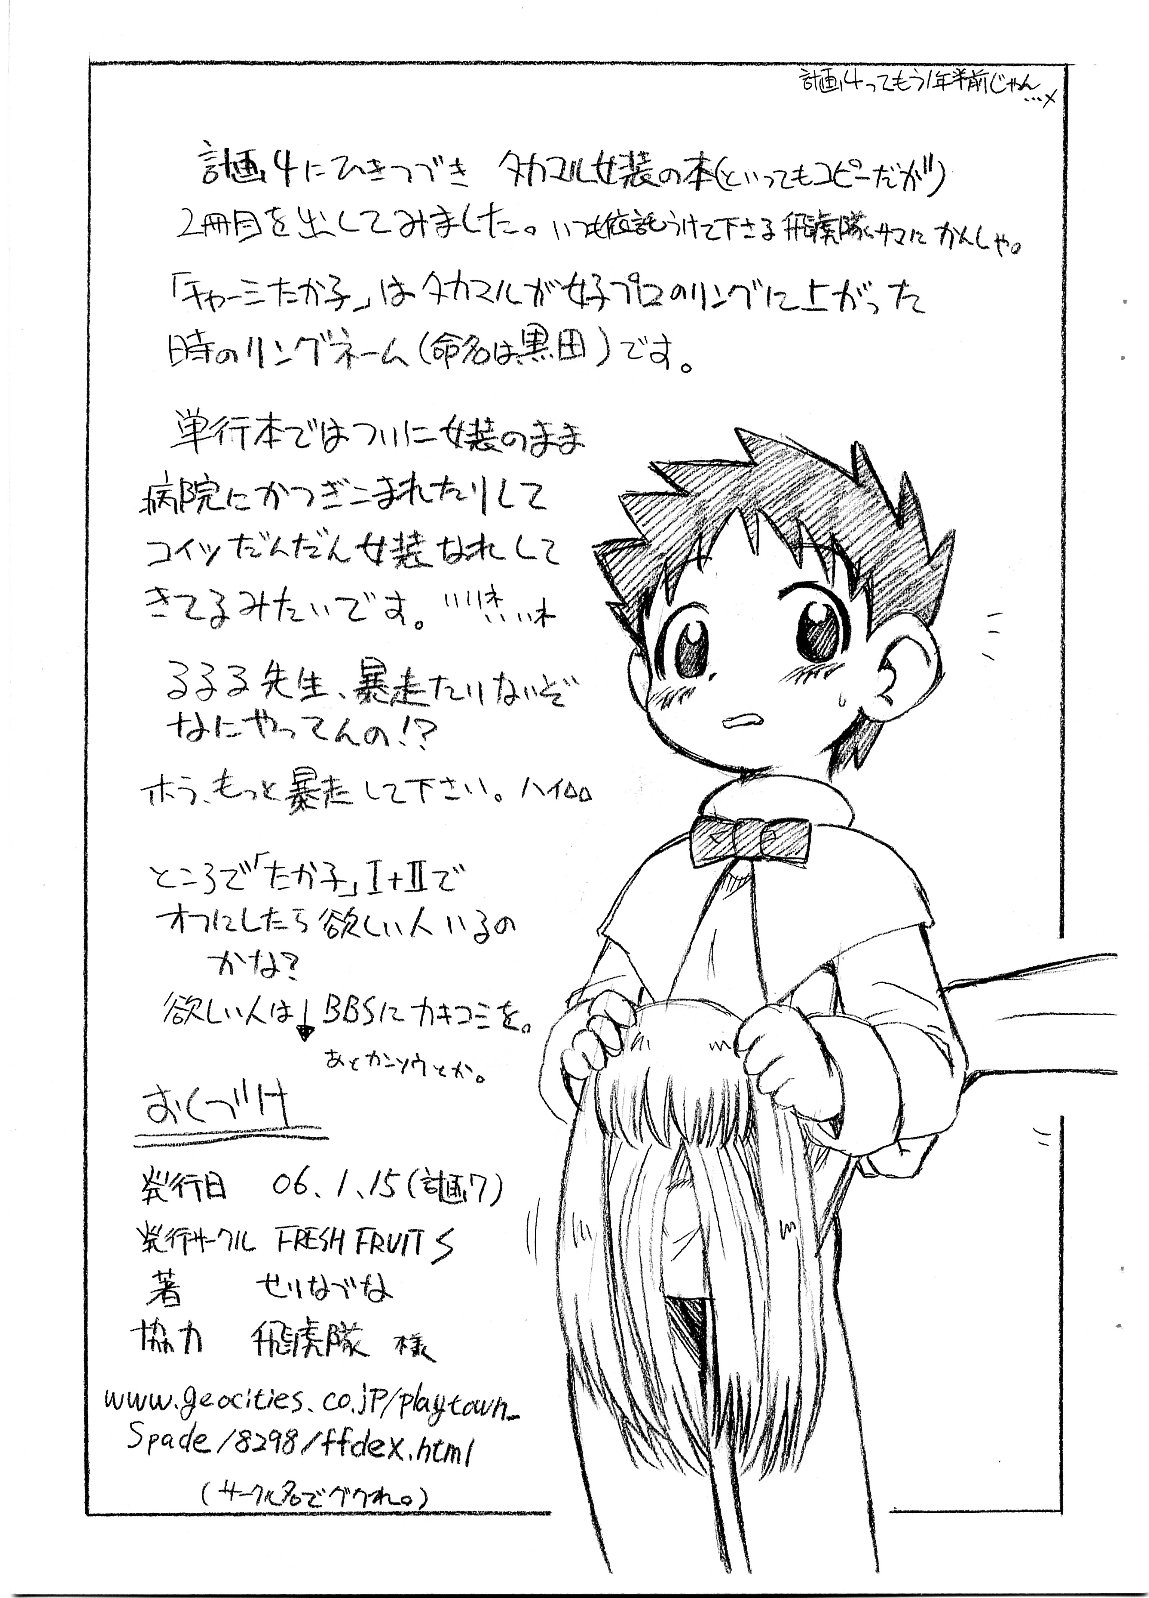 計画4ってもう1年半前じゃん
…×
計画4にひきつづき タカマル女装の本(といってもコピーだが)
2冊目を出してみました。いつも依託うけて下さる飛虎隊サマに かんしゃ。
「チャーミたか子」はタカマルが女子プロのリングに上がった
時のリングネーム(命名は黒田)です。
単行本ではついに女装のまま
病院にかつぎこまれたりして
コイツだんだん女装なれして
きてるみたいです。
るるる先生、暴走たりないぞ
なにやってんの!?
ホラ、もっと暴走して下さい。ハイ
ところで「たか子」I+IIで
オフにしたら欲しい人いるの
かな?
欲しい人は↓BBSにカキコミを。
あとカンソウとか。
おくづけ
発行日 06.1.15(計画7)
発行サークル FRESH FRUITS
著 せりなずな
協力 飛虎隊 様
www.geocities.co.jp/playtown_
Spade/8298/ffdex.html
(サークル名でググれ。)